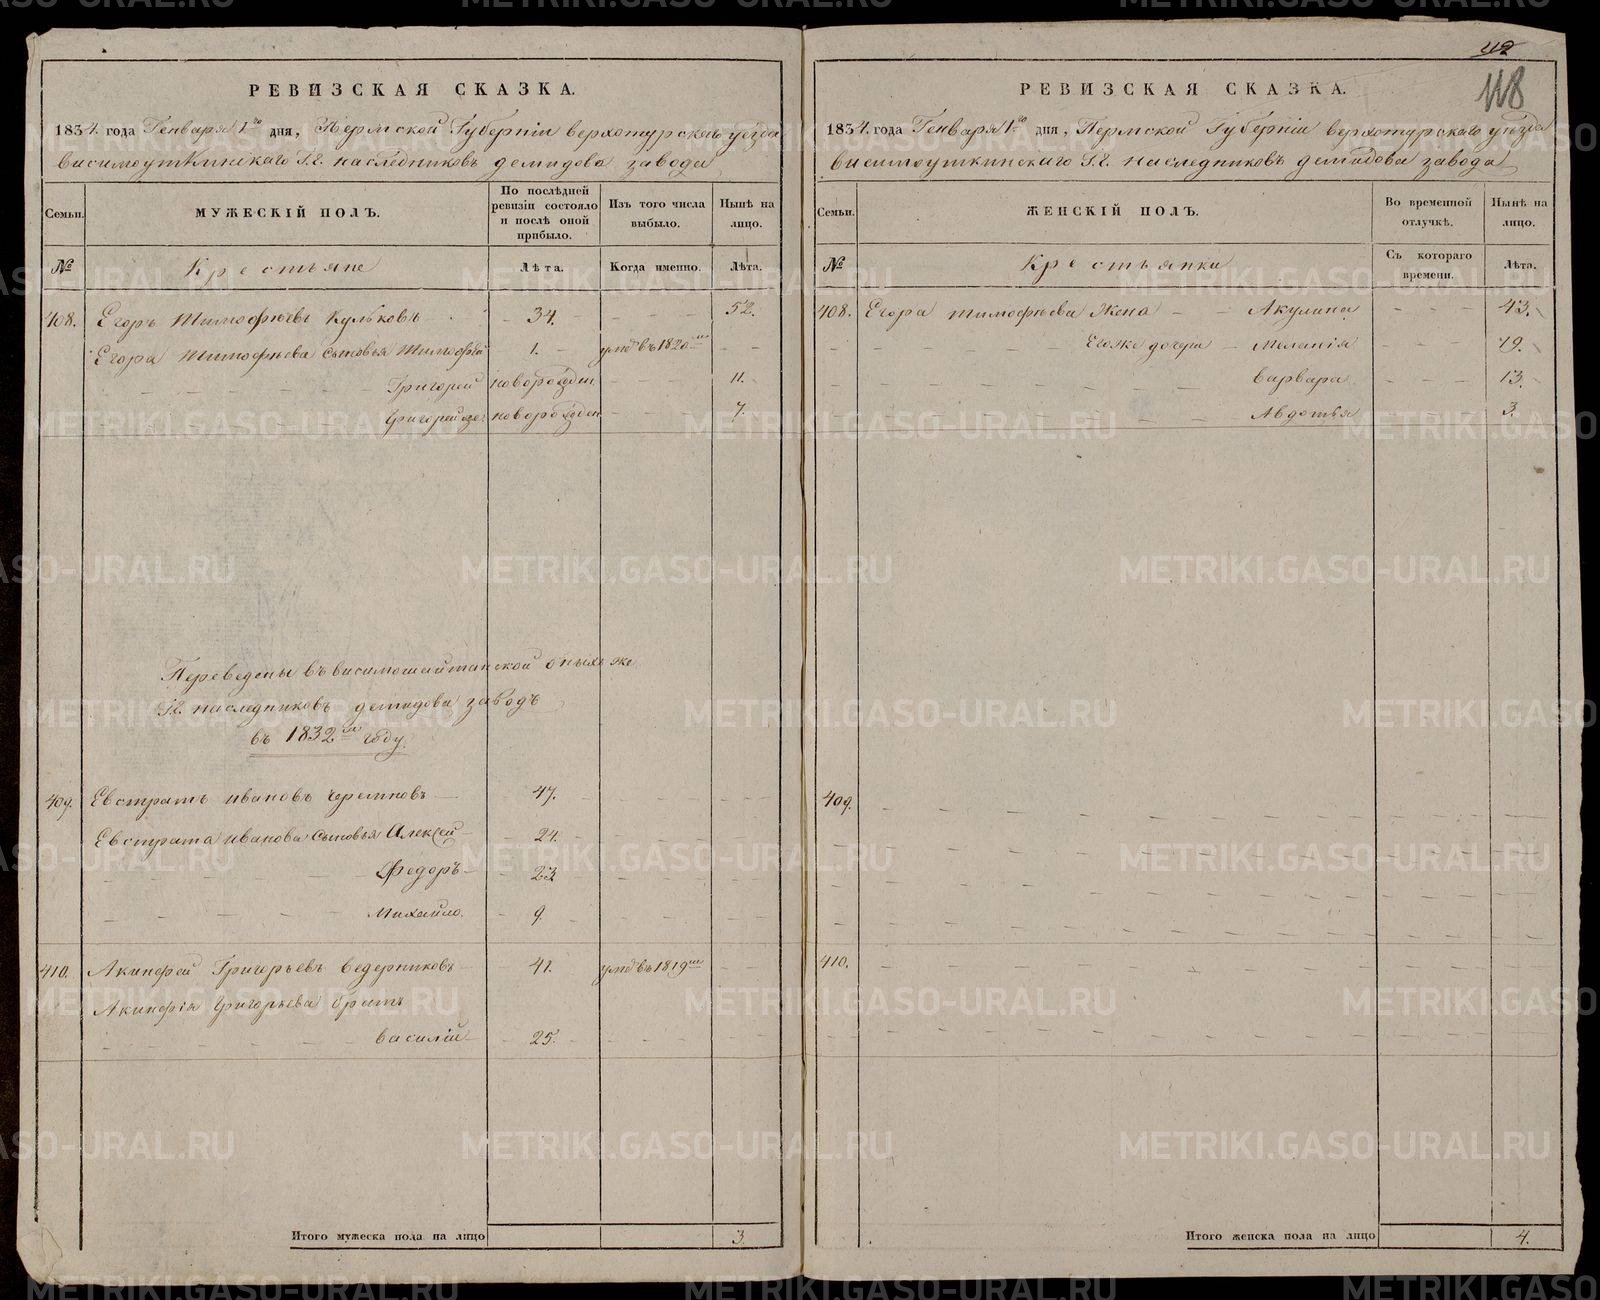 42
118
РЕВИЗСКАЯ СКАЗКА.
1834. года Генваря 1го дня, Пермской Губерніи верхотурскаго уѣзда
висимоуткинскаго Г.г. наследниковъ демидова завода
Семьи. МУЖЕСКІЙ ПОЛЪ. По послѣдней ревизіи состояло и послѣ оной прибыло. Изъ того числа выбыло. Нынѣ на лицо.
№ Крестьяне Лѣта. Когда именно. Лѣта.
408. Егоръ Тимофѣевъ Кульковъ 34. 52.
Егора Тимофѣева сыновья Тимофѣй 1. умре въ 1820м
Григорей новорожден. 11.
Григорей же новорожден. 7.
Переведены въ висимошайтанской оныхъ же
Г.г. наследниковъ демидова заводъ
въ 1832м году.
409. Евстратъ ивановъ Черемновъ 47.
Евстрата иванова сыновья Алексей 24.
Федоръ 23
Михайло. 9.
410. Акинфей Григорьевъ ведерниковъ 41. умре въ 1819м
Акинфія Григорьева братъ
василій 25.
Итого мужеска пола на лицо 3.
РЕВИЗСКАЯ СКАЗКА.
1834. года Генваря 1го дня, Пермской Губерніи верхотурскаго уѣзда
висимоуткинскаго Г.г. наследниковъ демидова завода
Семьи. ЖЕНСКІЙ ПОЛЪ. Во временной отлучкѣ. Нынѣ на лицо.
№ Крестьянки Съ котораго времени. Лѣта.
408. Егора тимофѣева жена Акулина 43.
Его же дочери Меланія 19.
варвара 13.
Авдотья 3.
409.
410.
Итого женска пола на лицо 4.
METRIKI.GASO-URAL.RU